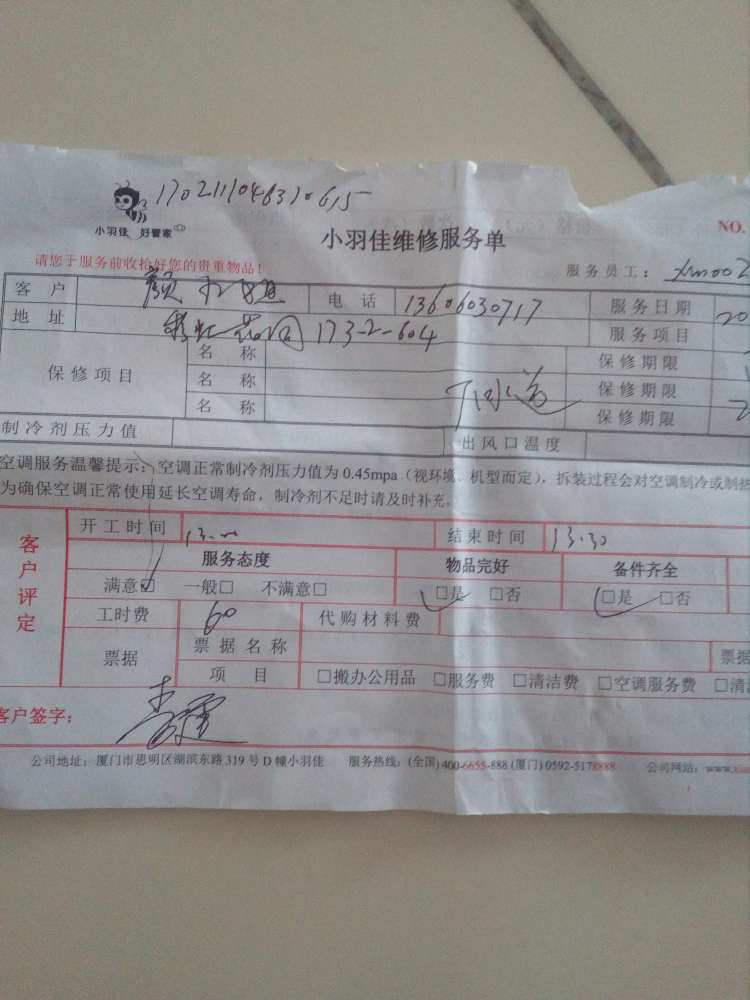 1702111048310615
小羽佳 好管家
小羽佳维修服务单
NO.
请您于服务前收拾好您的贵重物品!
服务员工: xm002
客 户 颜小姐 电 话 13606030717 服务日期 20
地 址 彩虹花园 173-2-604 服务项目
保修项目 名 称 保修期限
名 称 保修期限
名 称 保修期限 2
制冷剂压力值 出风口温度
空调服务温馨提示: 空调正常制冷剂压力值为 0.45mpa (视环境、机型而定), 拆装过程会对空调制冷或制热
为确保空调正常使用延长空调寿命, 制冷剂不足时请及时补充。
客户评定
开工时间 13.00 结束时间 13.30
服务态度 物品完好 备件齐全
满意☑ 一般□ 不满意□ □是 □否 □是 □否
工时费 60 代购材料费
票据 票据名称 票据
项 目 □搬办公用品 □服务费 □清洁费 □空调服务费 □清洁
客户签字:
公司地址: 厦门市思明区湖滨东路 319 号 D 幢小羽佳 服务热线: (全国) 400-6655-888 (厦门) 0592-5178888 公司网站: www.xia